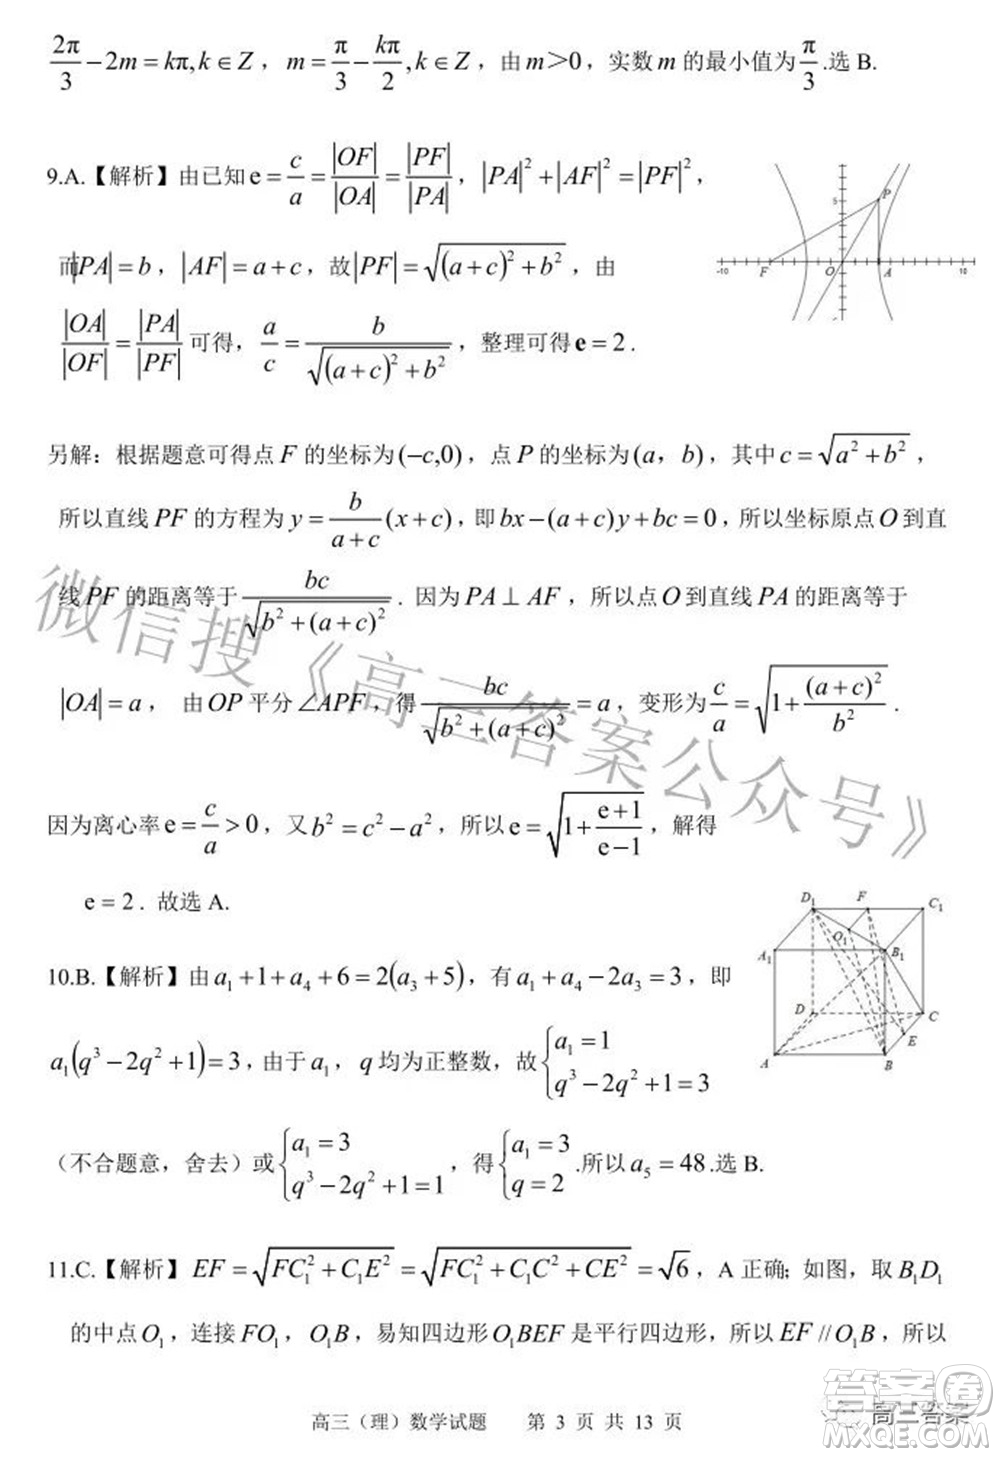 2π/3 − 2m = kπ, k ∈ Z，m = π/3 − kπ/2, k ∈ Z，由 m＞0，实数 m 的最小值为 π/3 .选 B.
9.A.【解析】由已知 e = c/a = |OF|/|OA| = |PF|/|PA|，|PA|² + |AF|² = |PF|²，
而|PA| = b，|AF| = a + c，故 |PF| = √((a + c)² + b²)，由
|OA|/|OF| = |PA|/|PF| 可得，a/c = b/√((a + c)² + b²)，整理可得 e = 2 .
P
5
-10 F O A 10
另解：根据题意可得点 F 的坐标为 (−c,0)，点 P 的坐标为 (a，b)，其中 c = √(a² + b²)，
所以直线 PF 的方程为 y = b/(a + c) (x + c)，即 bx − (a + c)y + bc = 0，所以坐标原点 O 到直
线 PF 的距离等于 bc/√(b² + (a + c)²) . 因为 PA ⊥ AF，所以点 O 到直线 PA 的距离等于
|OA| = a， 由 OP 平分 ∠APF，得 bc/√(b² + (a + c)²) = a，变形为 c/a = √(1 + (a + c)²/b²) .
因为离心率 e = c/a > 0，又 b² = c² − a²，所以 e = √(1 + (e + 1)/(e − 1))，解得
e = 2 . 故选 A.
D₁ F C₁
O₁
A₁ B₁
D C
E
A B
10.B.【解析】由 a₁ + 1 + a₄ + 6 = 2(a₃ + 5)，有 a₁ + a₄ − 2a₃ = 3，即
a₁(q³ − 2q² + 1) = 3，由于 a₁，q 均为正整数，故 {a₁ = 1 q³ − 2q² + 1 = 3
（不合题意，舍去）或 {a₁ = 3 q³ − 2q² + 1 = 1，得 {a₁ = 3 q = 2 .所以 a₅ = 48 .选 B.
11.C.【解析】EF = √(FC₁² + C₁E²) = √(FC₁² + C₁C² + CE²) = √6，A 正确；如图，取 B₁D₁
的中点 O₁，连接 FO₁，O₁B，易知四边形 O₁BEF 是平行四边形，所以 EF // O₁B，所以
高三（理）数学试题 第 3 页 共 13 页
微信搜《高三答案公众号》
高三答案
答案圈
MXQE.COM